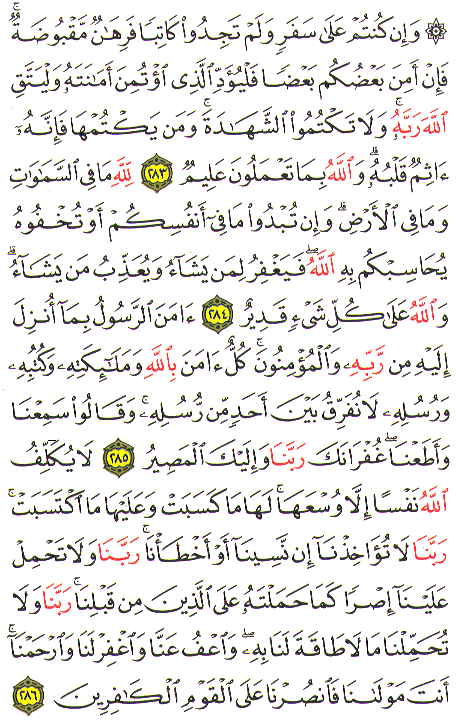 ۞ وَإِن كُنتُمْ عَلَىٰ سَفَرٍ وَلَمْ تَجِدُوا۟ كَاتِبًا فَرِهَـٰنٌ مَّقْبُوضَةٌ ۖ
فَإِنْ أَمِنَ بَعْضُكُم بَعْضًا فَلْيُؤَدِّ ٱلَّذِى ٱؤْتُمِنَ أَمَـٰنَتَهُۥ وَلْيَتَّقِ
ٱللَّهَ رَبَّهُۥ ۗ وَلَا تَكْتُمُوا۟ ٱلشَّهَـٰدَةَ ۚ وَمَن يَكْتُمْهَا فَإِنَّهُۥٓ
ءَاثِمٌ قَلْبُهُۥ ۗ وَٱللَّهُ بِمَا تَعْمَلُونَ عَلِيمٌ ٢٨٣ لِّلَّهِ مَا فِى ٱلسَّمَـٰوَٰتِ
وَمَا فِى ٱلْأَرْضِ ۗ وَإِن تُبْدُوا۟ مَا فِىٓ أَنفُسِكُمْ أَوْ تُخْفُوهُ
يُحَاسِبْكُم بِهِ ٱللَّهُ ۖ فَيَغْفِرُ لِمَن يَشَآءُ وَيُعَذِّبُ مَن يَشَآءُ ۗ
وَٱللَّهُ عَلَىٰ كُلِّ شَىْءٍ قَدِيرٌ ٢٨٤ ءَامَنَ ٱلرَّسُولُ بِمَآ أُنزِلَ
إِلَيْهِ مِن رَّبِّهِۦ وَٱلْمُؤْمِنُونَ ۚ كُلٌّ ءَامَنَ بِٱللَّهِ وَمَلَـٰٓئِكَتِهِۦ وَكُتُبِهِۦ
وَرُسُلِهِۦ لَا نُفَرِّقُ بَيْنَ أَحَدٍ مِّن رُّسُلِهِۦ ۚ وَقَالُوا۟ سَمِعْنَا
وَأَطَعْنَا ۖ غُفْرَانَكَ رَبَّنَا وَإِلَيْكَ ٱلْمَصِيرُ ٢٨٥ لَا يُكَلِّفُ
ٱللَّهُ نَفْسًا إِلَّا وُسْعَهَا ۚ لَهَا مَا كَسَبَتْ وَعَلَيْهَا مَا ٱكْتَسَبَتْ ۗ
رَبَّنَا لَا تُؤَاخِذْنَآ إِن نَّسِينَآ أَوْ أَخْطَأْنَا ۚ رَبَّنَا وَلَا تَحْمِلْ
عَلَيْنَآ إِصْرًا كَمَا حَمَلْتَهُۥ عَلَى ٱلَّذِينَ مِن قَبْلِنَا ۚ رَبَّنَا وَلَا
تُحَمِّلْنَا مَا لَا طَاقَةَ لَنَا بِهِۦ ۖ وَٱعْفُ عَنَّا وَٱغْفِرْ لَنَا وَٱرْحَمْنَآ ۚ
أَنتَ مَوْلَىٰنَا فَٱنصُرْنَا عَلَى ٱلْقَوْمِ ٱلْكَـٰفِرِينَ ٢٨٦